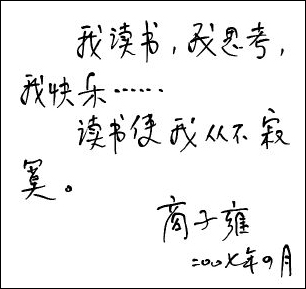 我读书，我思考，
我快乐……
读书使我从不寂
寞。
商子雍
二〇〇七年九月